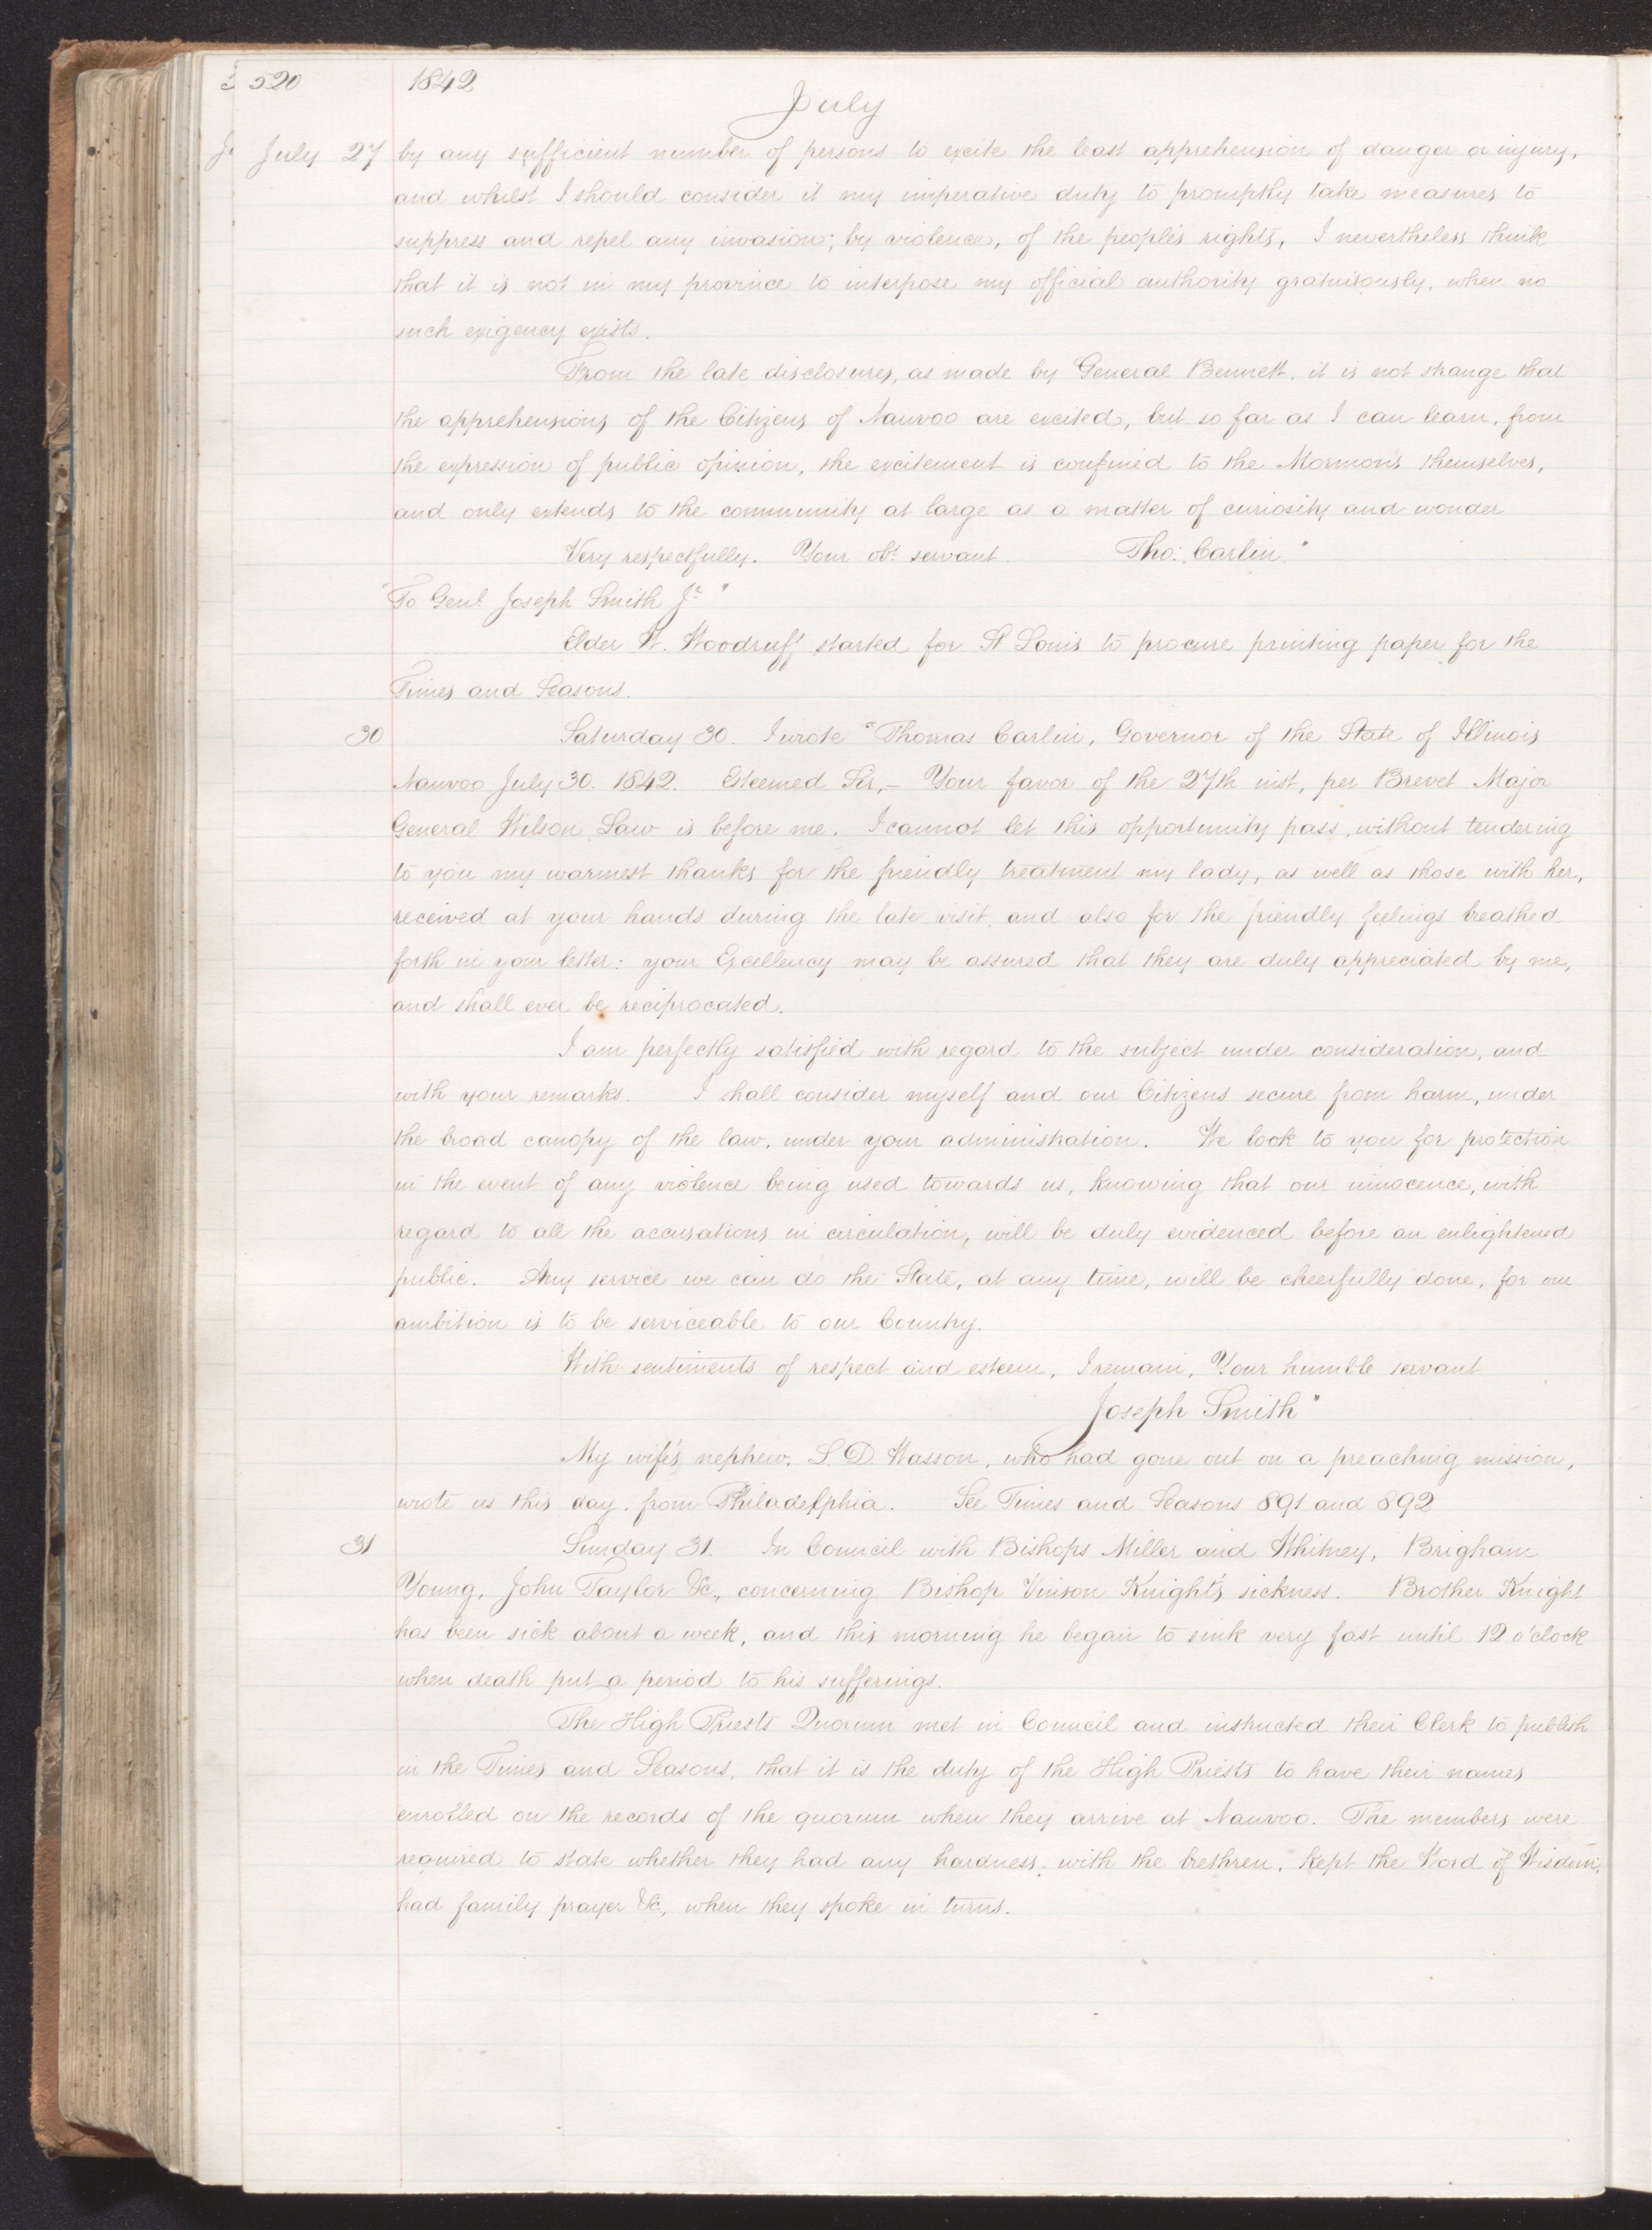 520 1842
July
July 27 by any sufficient number of persons to excite the least apprehension of danger or injury,
and whilst I should consider it my imperative duty to promptly take measures to
suppress and repel any invasion; by violence, of the people's rights, I nevertheless think
that it is not in my province to interpose my official authority gratuitously, when no
such exigency exists.
From the late disclosures, as made by General Bennett, it is not strange that
the apprehensions of the Citizens of Nauvoo are excited, but so far as I can learn, from
the expression of public opinion, the excitement is confined to the Mormons themselves,
and only extends to the community at large as a matter of curiosity and wonder
Very respectfully. Your obt. servant. Tho: Carlin."
"To Genl. Joseph Smith Jr."
Elder W. Woodruff started for St Louis to procure printing paper for the
Times and Seasons.
30 Saturday 30. I wrote "Thomas Carlin, Governor of the State of Illinois
Nauvoo July 30. 1842. Esteemed Sir,– Your favor of the 27th inst, per Brevet Major
General Wilson Law is before me. I cannot let this opportunity pass, without tendering
to you my warmest thanks for the friendly treatment my lady, as well as those with her,
received at your hands during the late visit, and also for the friendly feelings breathed
forth in your letter: your Excellency may be assured that they are duly appreciated by me,
and shall ever be reciprocated.
I am perfectly satisfied with regard to the subject under consideration, and
with your remarks. I shall consider myself and our Citizens secure from harm, under
the broad canopy of the law, under your administration. We look to you for protection
in the event of any violence being used towards us, knowing that our innocence, with
regard to all the accusations in circulation, will be duly evidenced before an enlightened
public. Any service we can do the State, at any time, will be cheerfully done, for our
ambition is to be serviceable to our Country.
With sentiments of respect and esteem, I remain, Your humble servant
Joseph Smith"
My wife's nephew, L. D. Wasson, who had gone out on a preaching mission,
wrote us this day, from Philadelphia. See Times and Seasons 891 and 892
31 Sunday 31. In Council with Bishops Miller and Whitney, Brigham
Young, John Taylor &c., concerning Bishop Vinson Knight's sickness. Brother Knight
has been sick about a week, and this morning he began to sink very fast until 12 o'clock
when death put a period to his sufferings.
The High Priests Quorum met in Council and instructed their Clerk to publish
in the Times and Seasons, that it is the duty of the High Priests to have their names
enrolled on the records of the quorum when they arrive at Nauvoo. The members were
required to state whether they had any hardness, with the brethren, kept the Word of Wisdom,
had family prayer &c, when they spoke in turns.